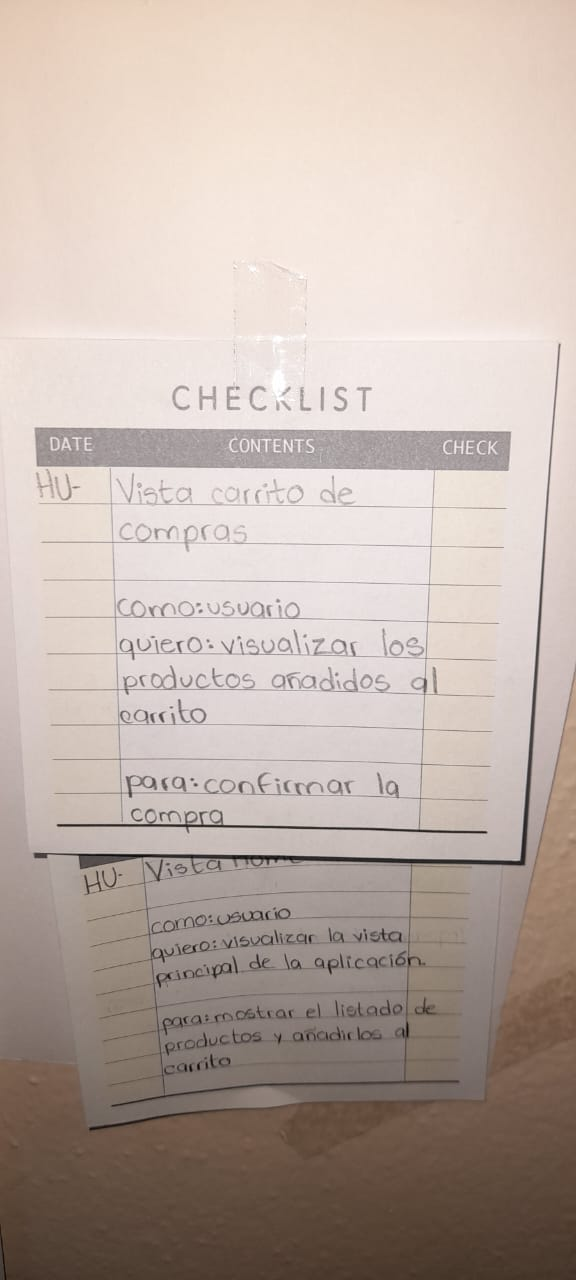 CHECKLIST
DATE CONTENTS CHECK
HU- Vista carrito de
compras
como:usuario
quiero:visualizar los
productos añadidos al
carrito
para:confirmar la
compra
HU- Vista home
como:usuario
quiero:visualizar la vista
principal de la aplicación.
para:mostrar el listado de
productos y añadirlos al
carrito